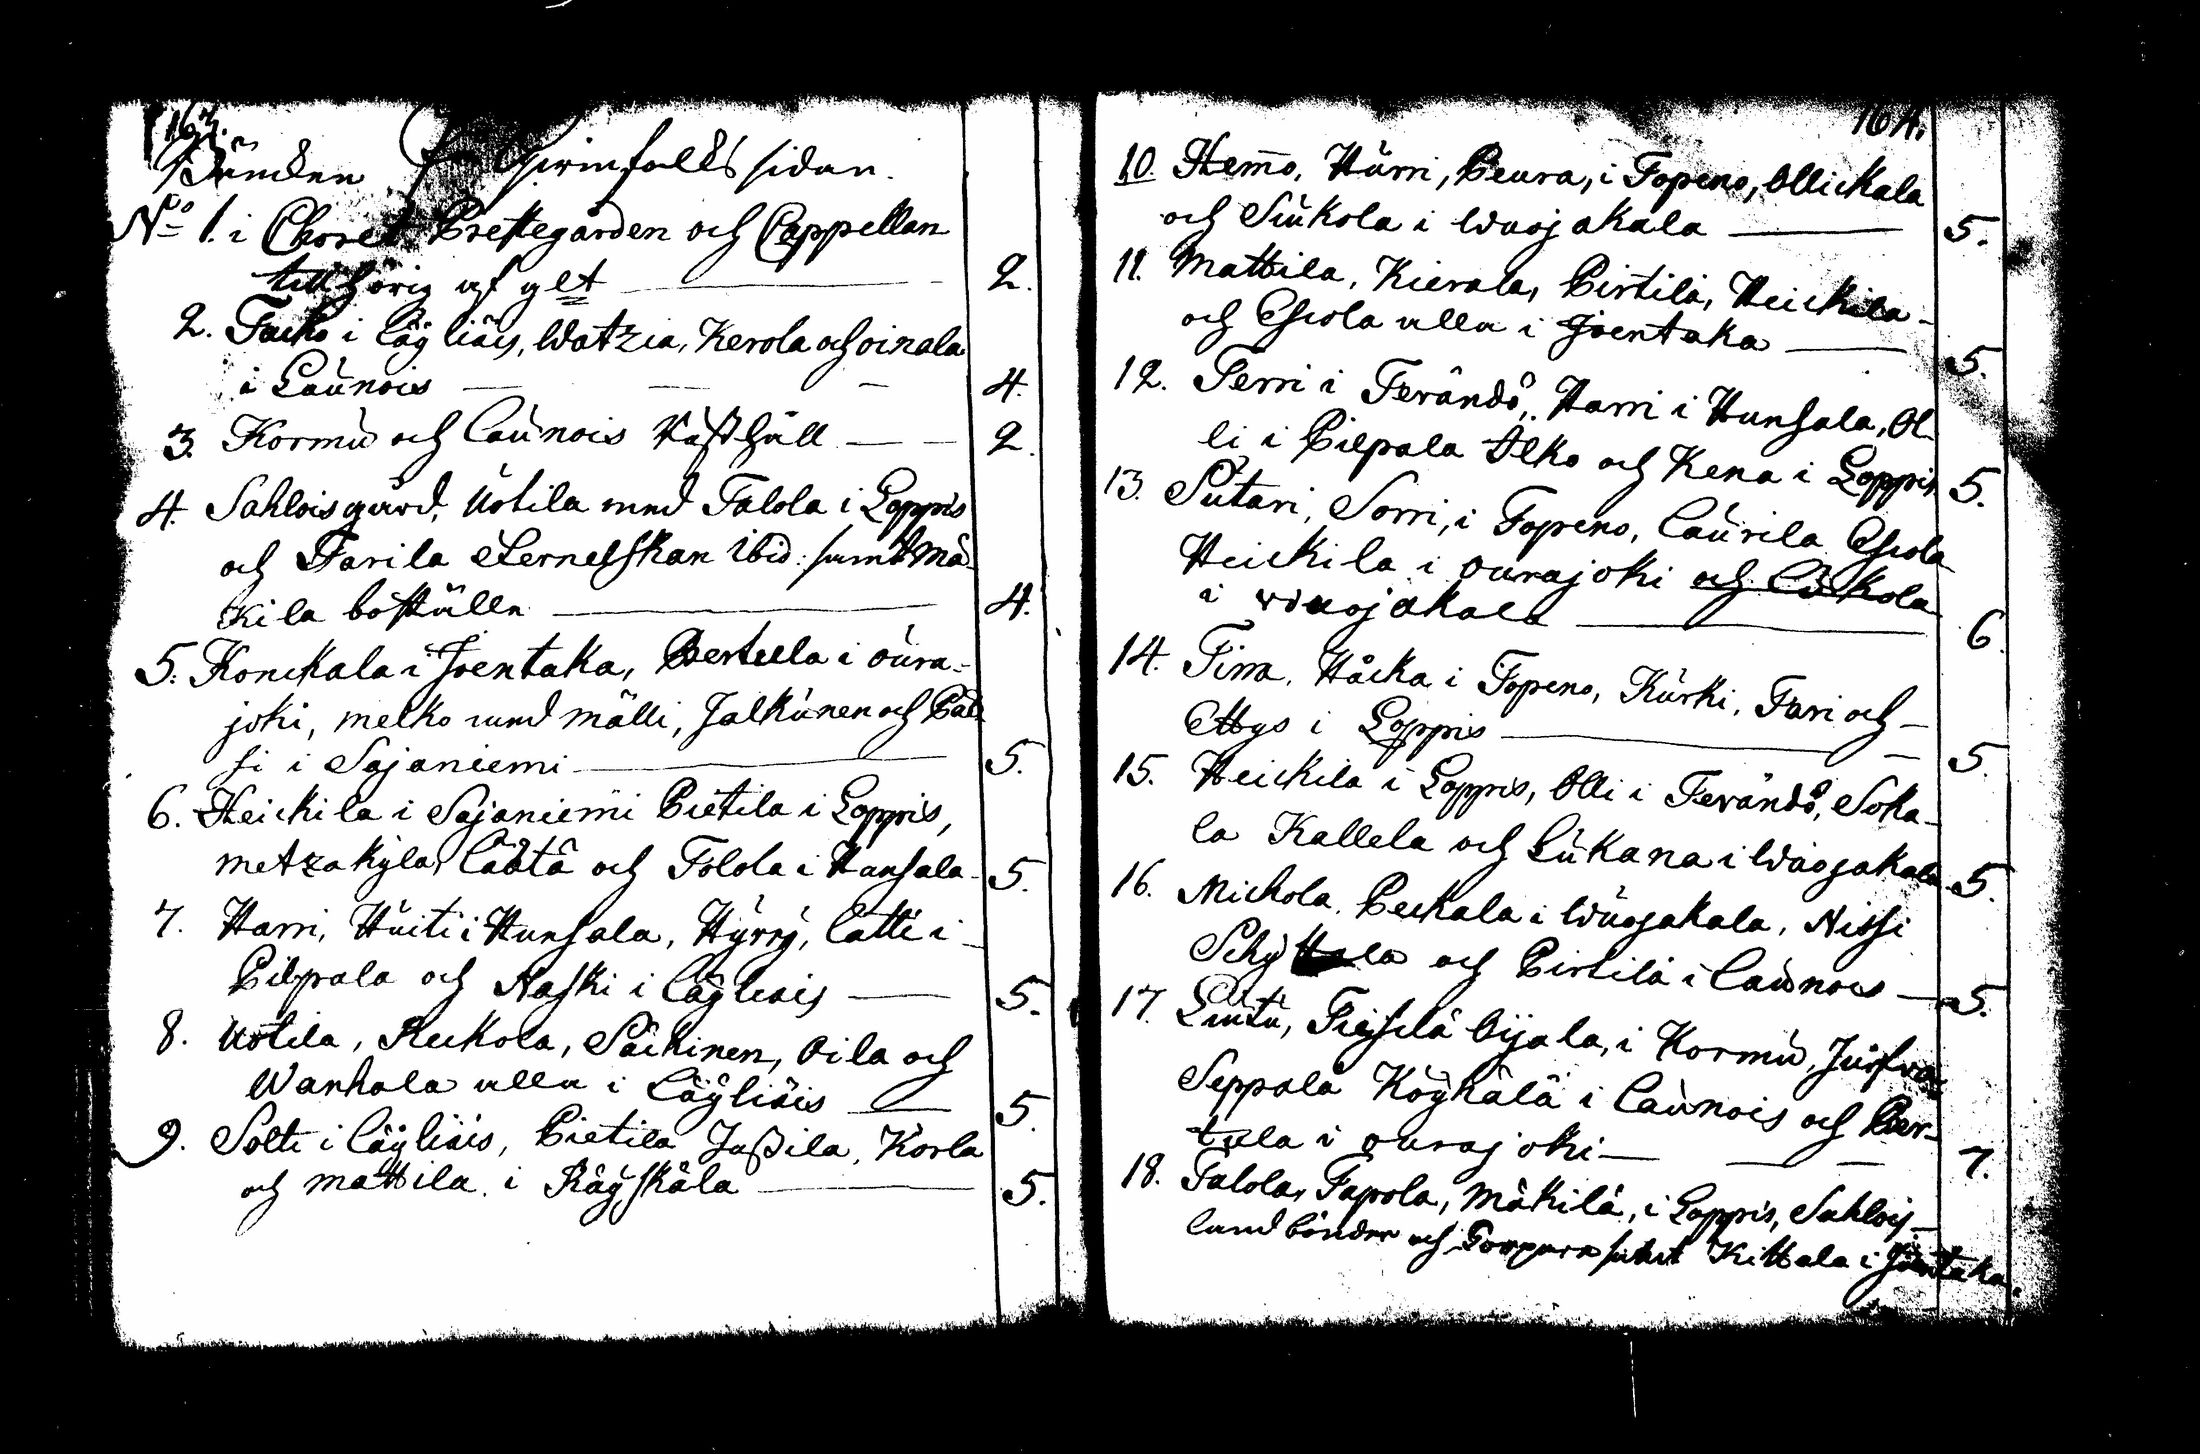 163.
Bäncken för Qwinfolks sidan.
No 1. i Choret Prestegården och Cappellan
till hörig af ylt 2.
2. Tacko i Läyliäis, Watzia, Kerola och oinala
i Launois 4.
3. Kormu och Launois Wästhäll 2.
4. Sahloisgård, Uotila med Talola i Loppis
och Tarila Sernelskan ibid: samt Mä-
kila boställe 4.
5. Konckala i Joentaka, Bertula i oura-
joki, melko med mälli, Jalkunen och Pas-
si i Sajaniemi 5.
6. Heickila i Sajaniemi Pietila i Loppis,
metzakyla, Läätä och Tolola i Hunsala 5.
7. Harri, Huiti i Hunsala, Hyrry, Latti i
Pilpala och Naski i Läyliäis 5.
8. Uotila, Reckola, Säckinen, Oila och
Wanhala alla i Läyliäis 5.
9. Solti i Läyliäis, Pietila Jussila, Korla
och mattila i Räyskäla 5.
164.
10. Hemo, Hurri, Peura, i Topeno, Ollickala
och Siukola i Wuojakala 5.
11. Mattila, Kierala, Pirtilä, Heickila
och Eskola alla i Joentaka 5.
12. Terri i Terändö, Harri i Hunsala, Ol-
li i Pilpala Alko och Kena i Loppis 5.
13. Sutari, Sorri, i Topeno, Laurila Eskola
Heickila i ourajoki och Liukola
i wuojakala 6.
14. Tirra, Håcka i Topeno, Kurki, Tari och
Ettys i Loppis 5.
15. Heickila i Loppis, Olli i Terändö, Soka-
la Kallela och Liukana i Wuojakala 5.
16. Mickola, Peckala i Wuojakala, Nissi
Schyttala och Pirtilä i Launois 5.
17. Lindu, Tiensilä Oijala, i Kormu,
Seppälä Köykälä i Launois och Ber-
tula i ourajoki 7.
18. Talola, Tapola, Mäkilä, i Loppis, Sahlois
land bönder och Kittala i Joentaka.